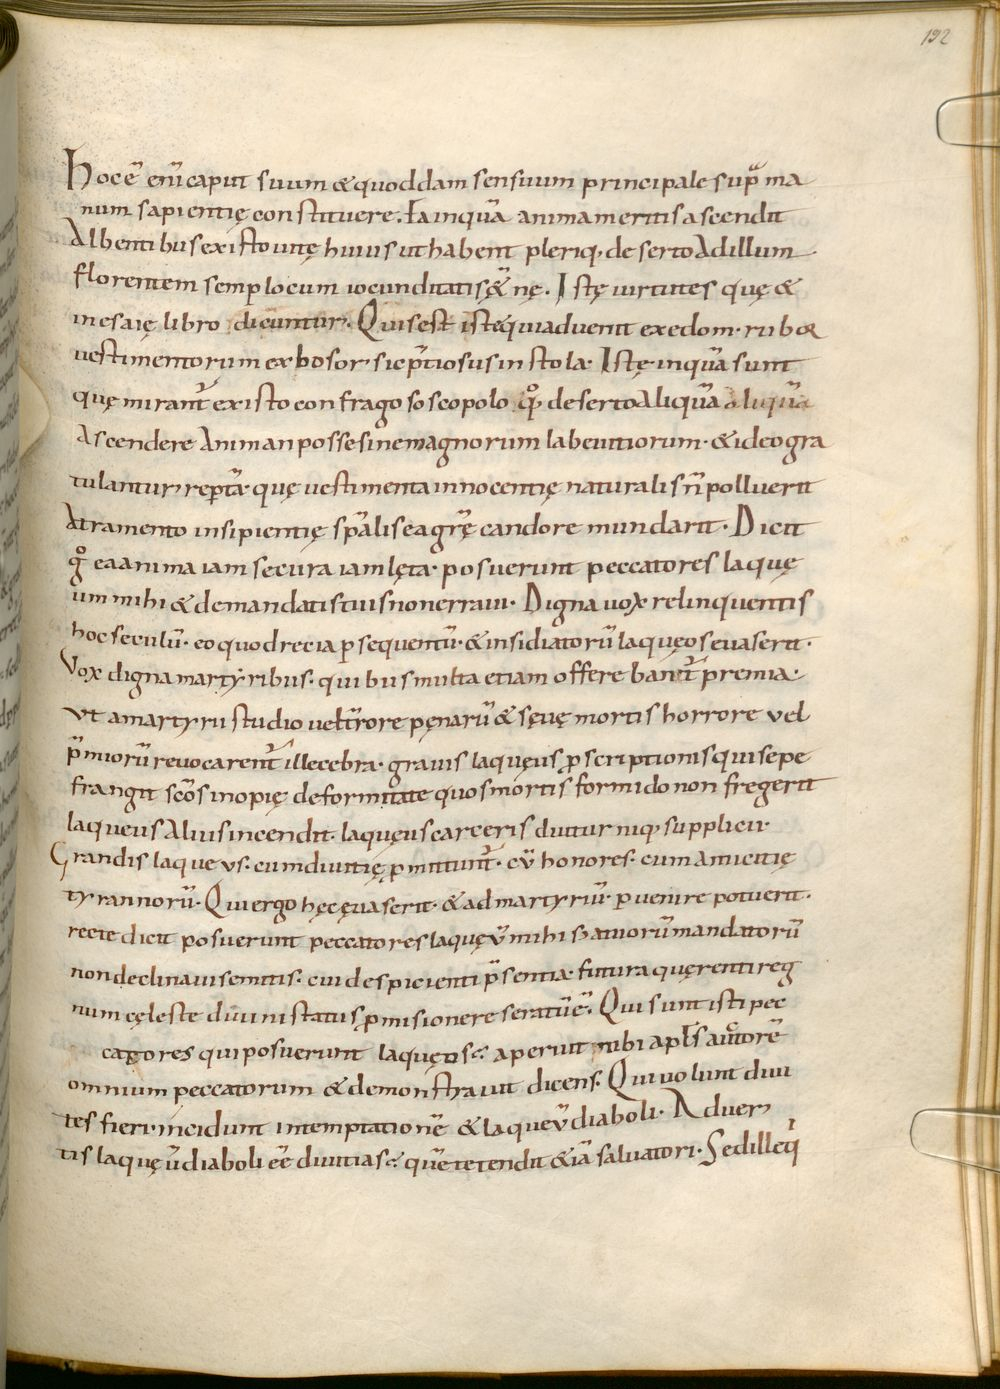 192
Hoc ē enī caput suum & quoddam sensuum principale sup̄ ma
num sapientię constituere. Ea inquā anima meritis ascendit
Albentibus ex isto uitę huius ut habent pleriq; deserto Ad illum
florentem semp locum iocunditatis &̄ nę. Istę uirtutes quę &
in esaię libro dicuntur. Quis est iste qui aduenit ex edom. rubor
uestimentorum ex bosor. sic p̄tiosus in stola. Istę inquā sunt
quę mirant̄ ex isto confragoso scopolo q̊; deserto Aliquā aliquā
Ascendere Animan posse sine magnorum labe uitiorum. & ideo gra
tulantur rep̄tā. quę uestimenta innocentię naturalis n̄ polluerit
Atramento insipientię sp̄alis ea gr̄ę candore mundarit. Dicit
g̊ ea anima iam secura iam lęta. posuerunt peccatores laquę
um mihi & de mandatis tuis non erraui. Digna uox relinquentis
hoc seculū. eo quod recia p sequentū. & insidiatorū laquęos euaserit.
Vox digna martyribus. quibus multa etiam offerebant̄ premia.
Vt a martyrii studio uel t̄rore pęnarū & sęuę mortis horrore vel
p̄miorū reuocarent̄ illecebra. grauis laquęus p scriptionis qui sepe
frangit sc̄os inopię deformitate quos mortis formido non fregerit
laqueus Alius incendit. laquęus carceris diutur niq; supplicii.
Grandis laqueus. cum diuitię p mittunt̄. cū honores. cum amicitię
tyrannorū. Qui ergo hęc ęuaserit. & ad martyriū. p uenire potuerit.
recte dicit posuerunt peccatores laquęū mihi s; a tuorū mandatorū
non declinaui semitis. cui despicienti p̄sentia. futura quęrenti reg
num cęleste diuini status p misione reseratū ē. Qui sunt isti pec
catores qui posuerunt laquęos. aperuit nobis apl̄s auctorē
omnium peccatorum & demonstrauit dicens. Qui uolunt diui
tes fieri. incidunt in temptationē & laqueū diaboli. Aduer
tis laquęū diaboli eē diuitias. quē tetendit &iā saluatori. Sed ille q̇